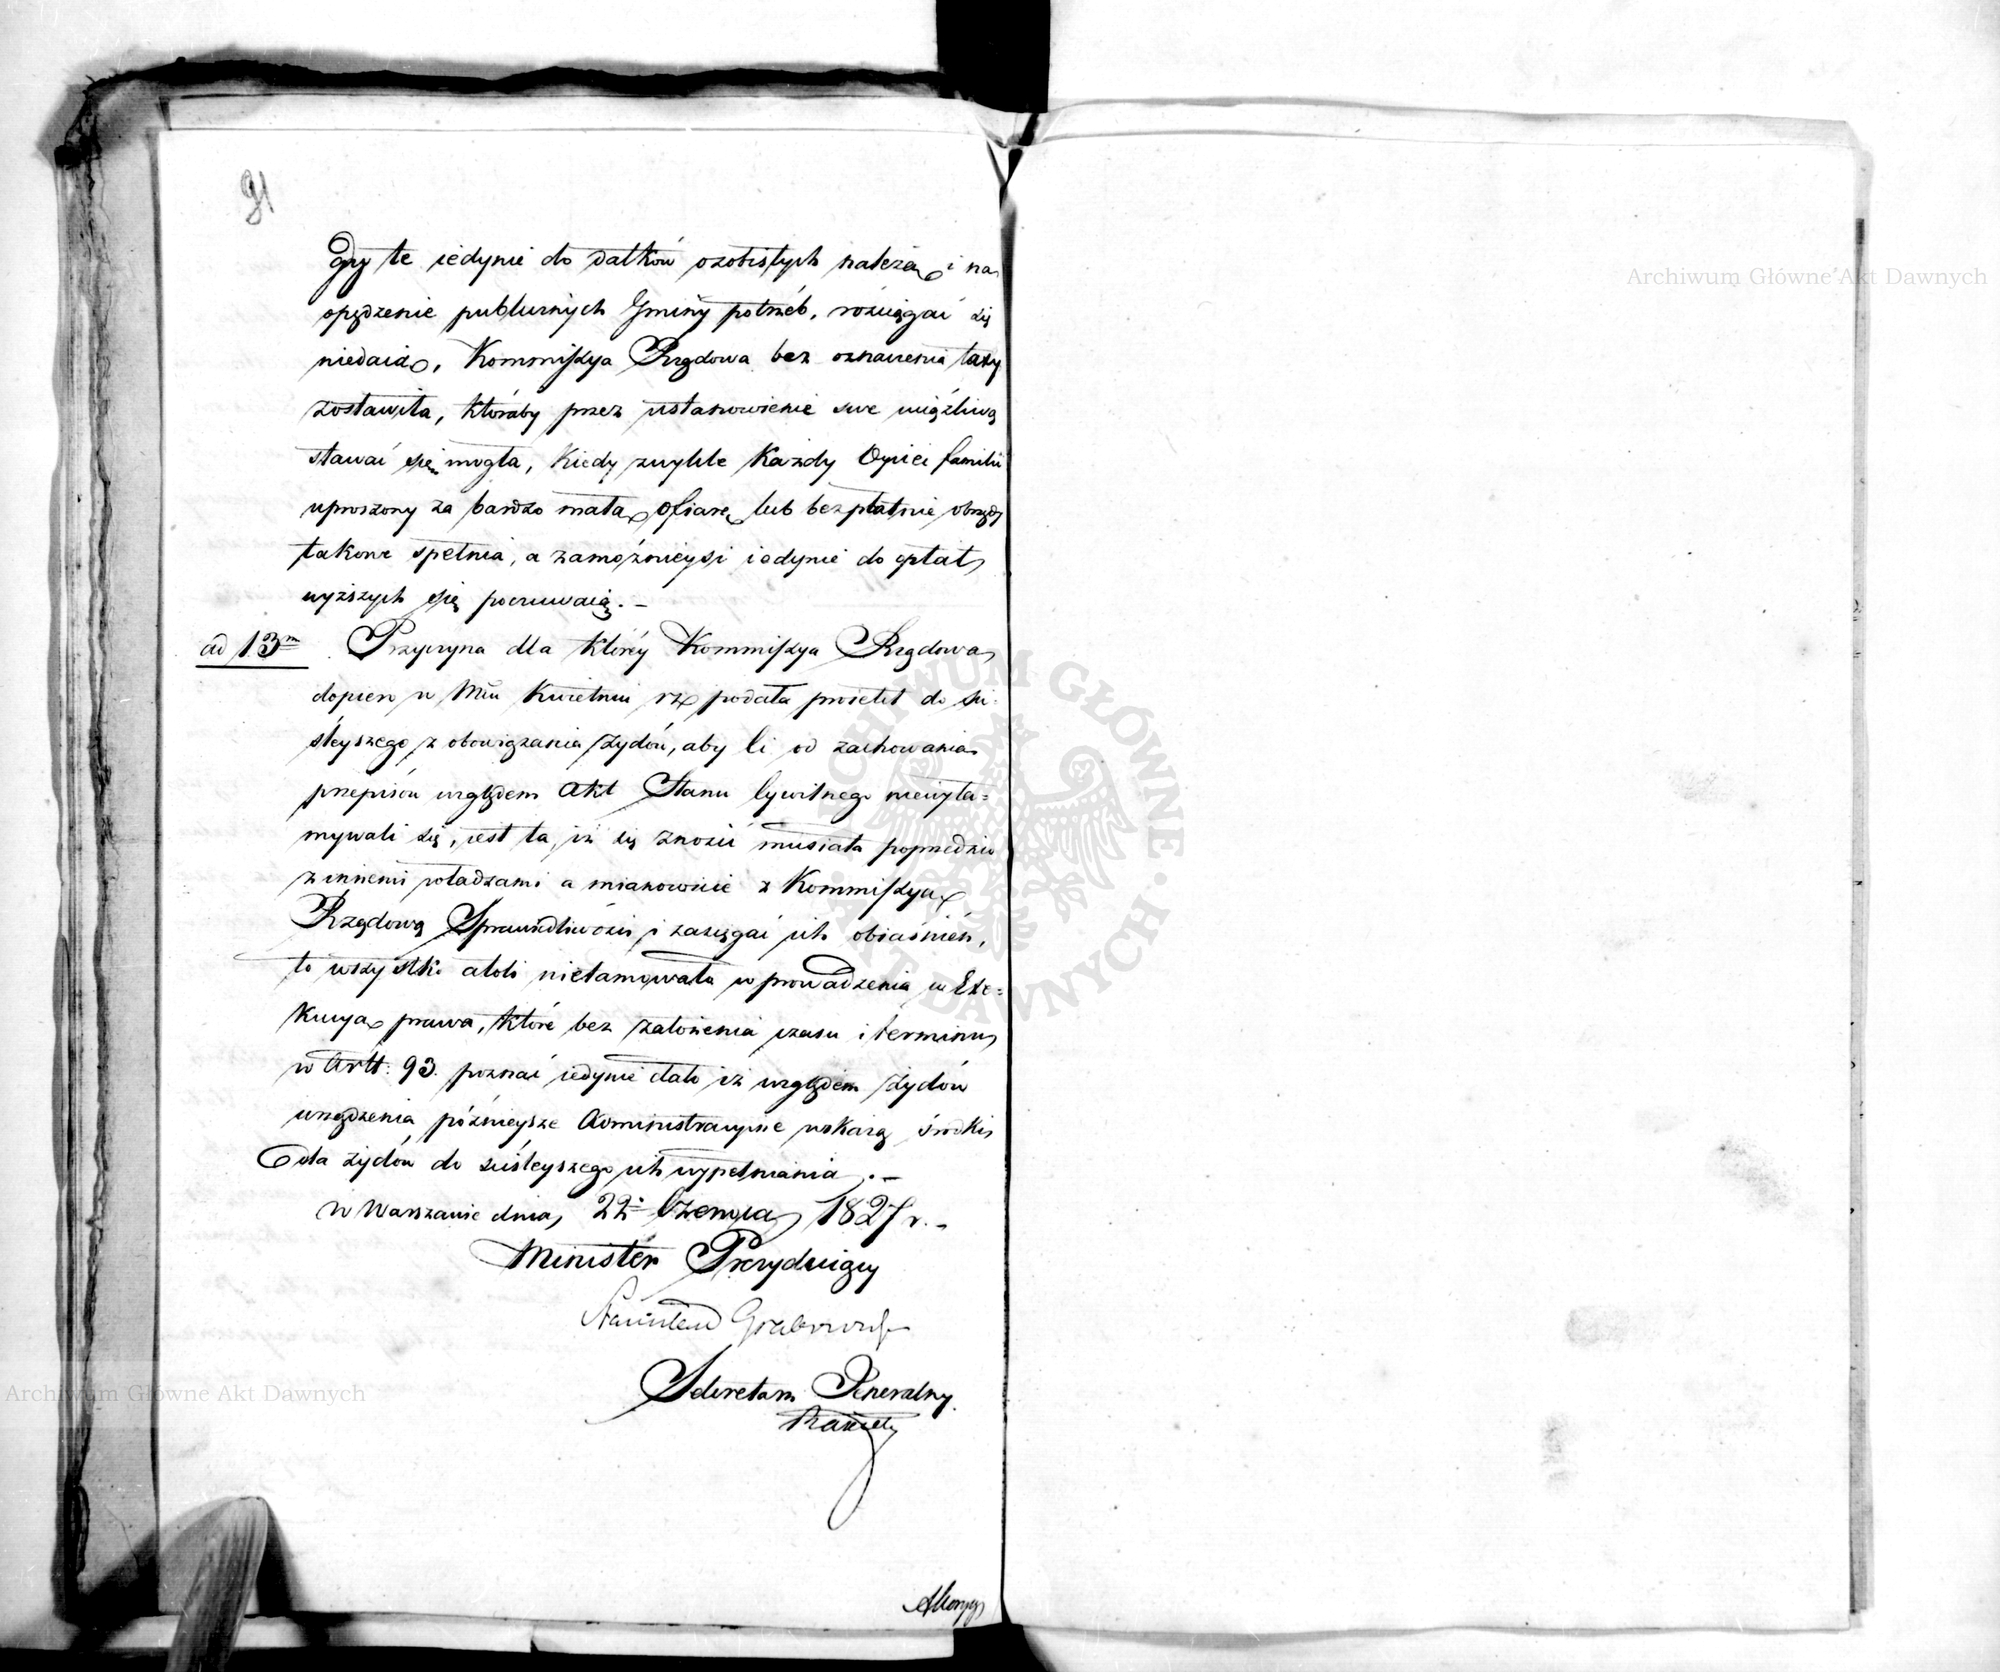 91
Gdy te iedynie do datków osobistych należą i na
opędzenie publicznych Gminy potrzeb, rościągać się
niedaią, Kommissya Rządowa bez oznaczenia taxy
zostawiła, któraby przez ustanowienie swe uciążliwą
stawać się mogła, kiedy zwykle każdy Oyciec familii
uproszony za bardzo małą ofiarę lub bezpłatnie obrzędy
takowe spełnia, a zamożnieysi iedynie do opłat
wyższych się poczuwaią. —
ad 13m Przyczyna dla któréy Kommissya Rządowa
dopiero w Mcu Kwietniu rb podała proiekt do ści-
śleyszego zobowiązania Żydów, aby ci od zachowania
przepisów względem Akt Stanu Cywilnego niewyła=
mywali się, iest ta, iż się znosić musiała poprzednio
z innemi władzami a mianowicie z Kommissyą
Rządową Sprawiedliwości i zasięgać ich obiaśnień,
to wszystko atoli nietamowało wprowadzenia w Exe=
kucyą prawa, które bez założenia czasu i terminu
w Artt: 93. poznać iedynie dało iż względem Żydów
urządzenia późnieysze Administracyine wskażą środki
dla żydów do ściśleyszego ich wypełniania. —
w Warszawie dnia 22 Czerwca 1827 r. —
Minister Prezyduiący
Stanisław Grabowski
Sekretarz Generalny.
Archiwum Główne Akt Dawnych
Archiwum Główne Akt Dawnych
ARCHIWUM GŁÓWNE · AKT DAWNYCH ·